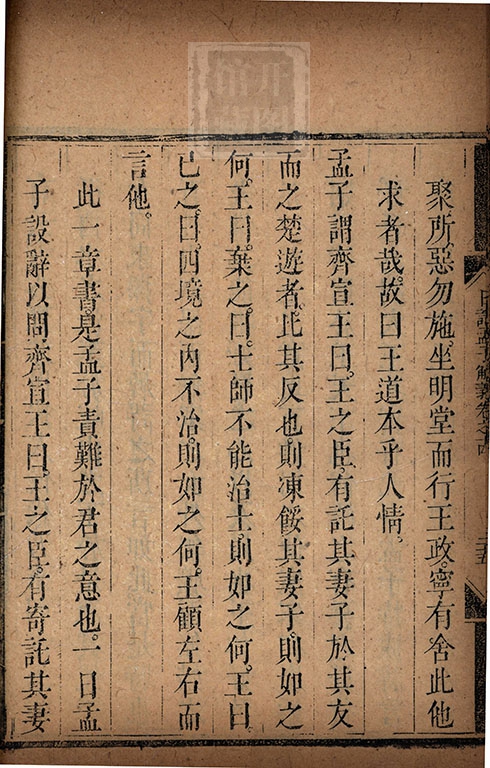 日講孟子解義卷之十四
聚所惡勿施。坐明堂而行王政。寧有舍此他
求者哉。故曰王道本乎人情。
孟子謂齊宣王曰。王之臣。有託其妻子於其友
而之楚遊者。比其反也。則凍餒其妻子。則如之
何。王曰。棄之。曰。士師不能治士。則如之何。王曰
已之。曰。四境之內不治。則如之何。王顧左右而
言他。
此一章書。是孟子責難於君之意也。一日孟
子設辭以問齊宣王曰。王之臣。有寄託其妻